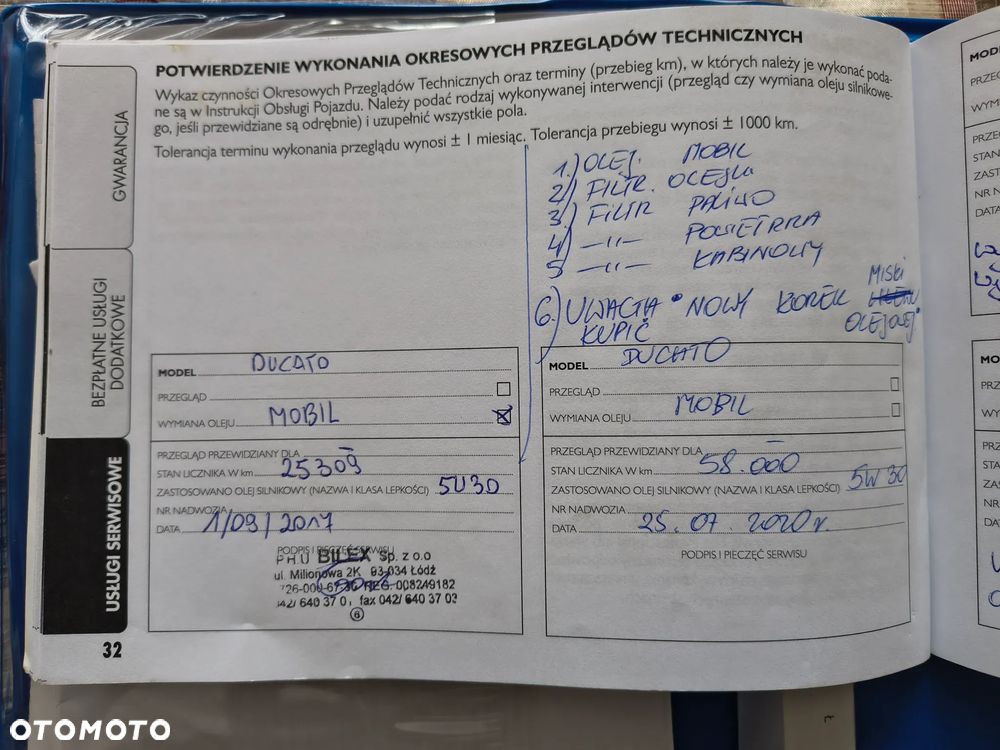 POTWIERDZENIE WYKONANIA OKRESOWYCH PRZEGLĄDÓW TECHNICZNYCH
Wykaz czynności Okresowych Przeglądów Technicznych oraz terminy (przebieg km), w których należy je wykonać poda-
ne są w Instrukcji Obsługi Pojazdu. Należy podać rodzaj wykonywanej interwencji (przegląd czy wymiana oleju silnikowe-
go, jeśli przewidziane są odrębnie) i uzupełnić wszystkie pola.
Tolerancja terminu wykonania przeglądu wynosi ± 1 miesiąc. Tolerancja przebiegu wynosi ± 1000 km.
GWARANCJA
BEZPŁATNE USŁUGI
DODATKOWE
USŁUGI SERWISOWE
1.) OLEJ. MOBIL
2.) FILTR. OLEJU
3.) FILTR PALIWO
4) —11— POWIETRZA
5 —11— KABINOWY
6.) UWAGA • NOWY KOREK MISKI
KUPIĆ OLEJOWEJ
MODEL DUCATO
PRZEGLĄD
WYMIANA OLEJU MOBIL
PRZEGLĄD PRZEWIDZIANY DLA
STAN LICZNIKA W km 25309
ZASTOSOWANO OLEJ SILNIKOWY (NAZWA I KLASA LEPKOŚCI) 5W30
NR NADWOZIA
DATA 1/09/2017
PODPIS I PIECZĘĆ SERWISU
PHU BILEX Sp. z o.o
ul. Milionowa 2K 93-034 Łódź
REG. 008249182
042/ 640 37 0 , fax 042/ 640 37 03
6
MODEL DUCATO
PRZEGLĄD
WYMIANA OLEJU MOBIL
PRZEGLĄD PRZEWIDZIANY DLA
STAN LICZNIKA W km 58.000
ZASTOSOWANO OLEJ SILNIKOWY (NAZWA I KLASA LEPKOŚCI) 5W30
NR NADWOZIA
DATA 25.07.2020r.
PODPIS I PIECZĘĆ SERWISU
32
OTOMOTO